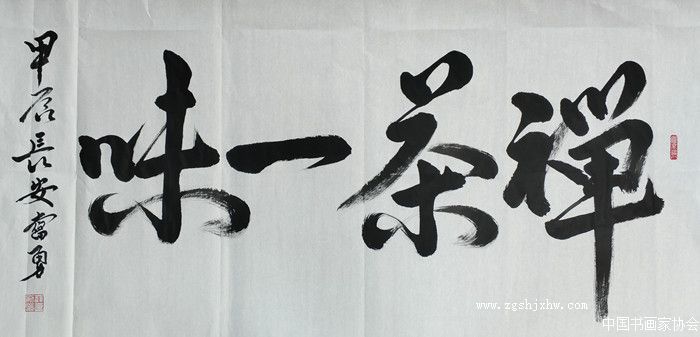 禅茶一味
甲辰長安勇
www.zgshjxhw.com
中国书画家协会